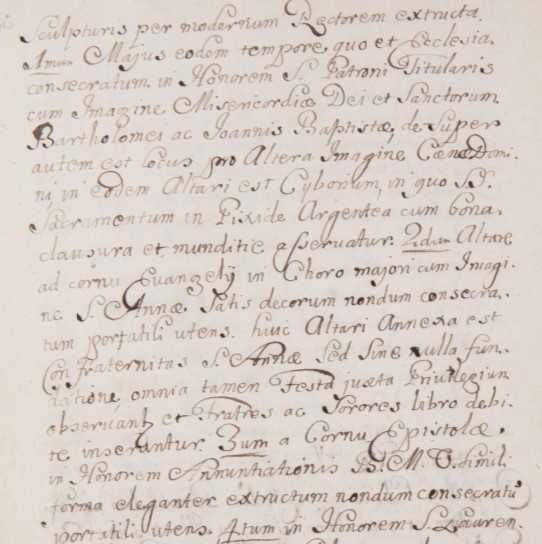 Sculpturis per modernum Rectorem extructa.
1mum Majus eodem tempore quo et Ecclesia,
consecratum in Honorem S. Patroni Titularis
cum Imagine Misericordiæ Dei et Sanctorum
Bartholomei ac Ioannis Baptistæ, de super
autem est locus pro Altera Imagine Cænæ Domi,
ni, in eodem Altari est Cyborium, in quo SS.
Sacramentum in Pixide Argentea cum bona,
clausura et munditie asservatur. 2dum Altare
ad cornu Euangelij in Choro majori cum Imagi,
ne S. Annæ satis decorum nondum consecra,
tum portatili utens. huic Altari Annexa est
Confraternitas S. Annæ sed sine nulla fun,
datione omnia tamen Festa juxta Privilegium
observantz et Fratres ac Sorores libro debi,
te inserantur. 3um a Cornu Epistolæ,
in Honorem Annuntiationis B. M. V. simili
forma eleganter extructum nondum consecratū
portatili utens. 4tum in Honorem S. Lauren,